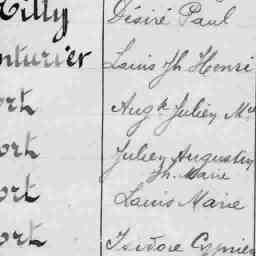 Tilly Désiré Paul
nturier Louis Jh Henri
ort Augte Julien M
ort Julien Augustin
Jh. Marie
ort Louis Marie
ort Isidore Cyprien